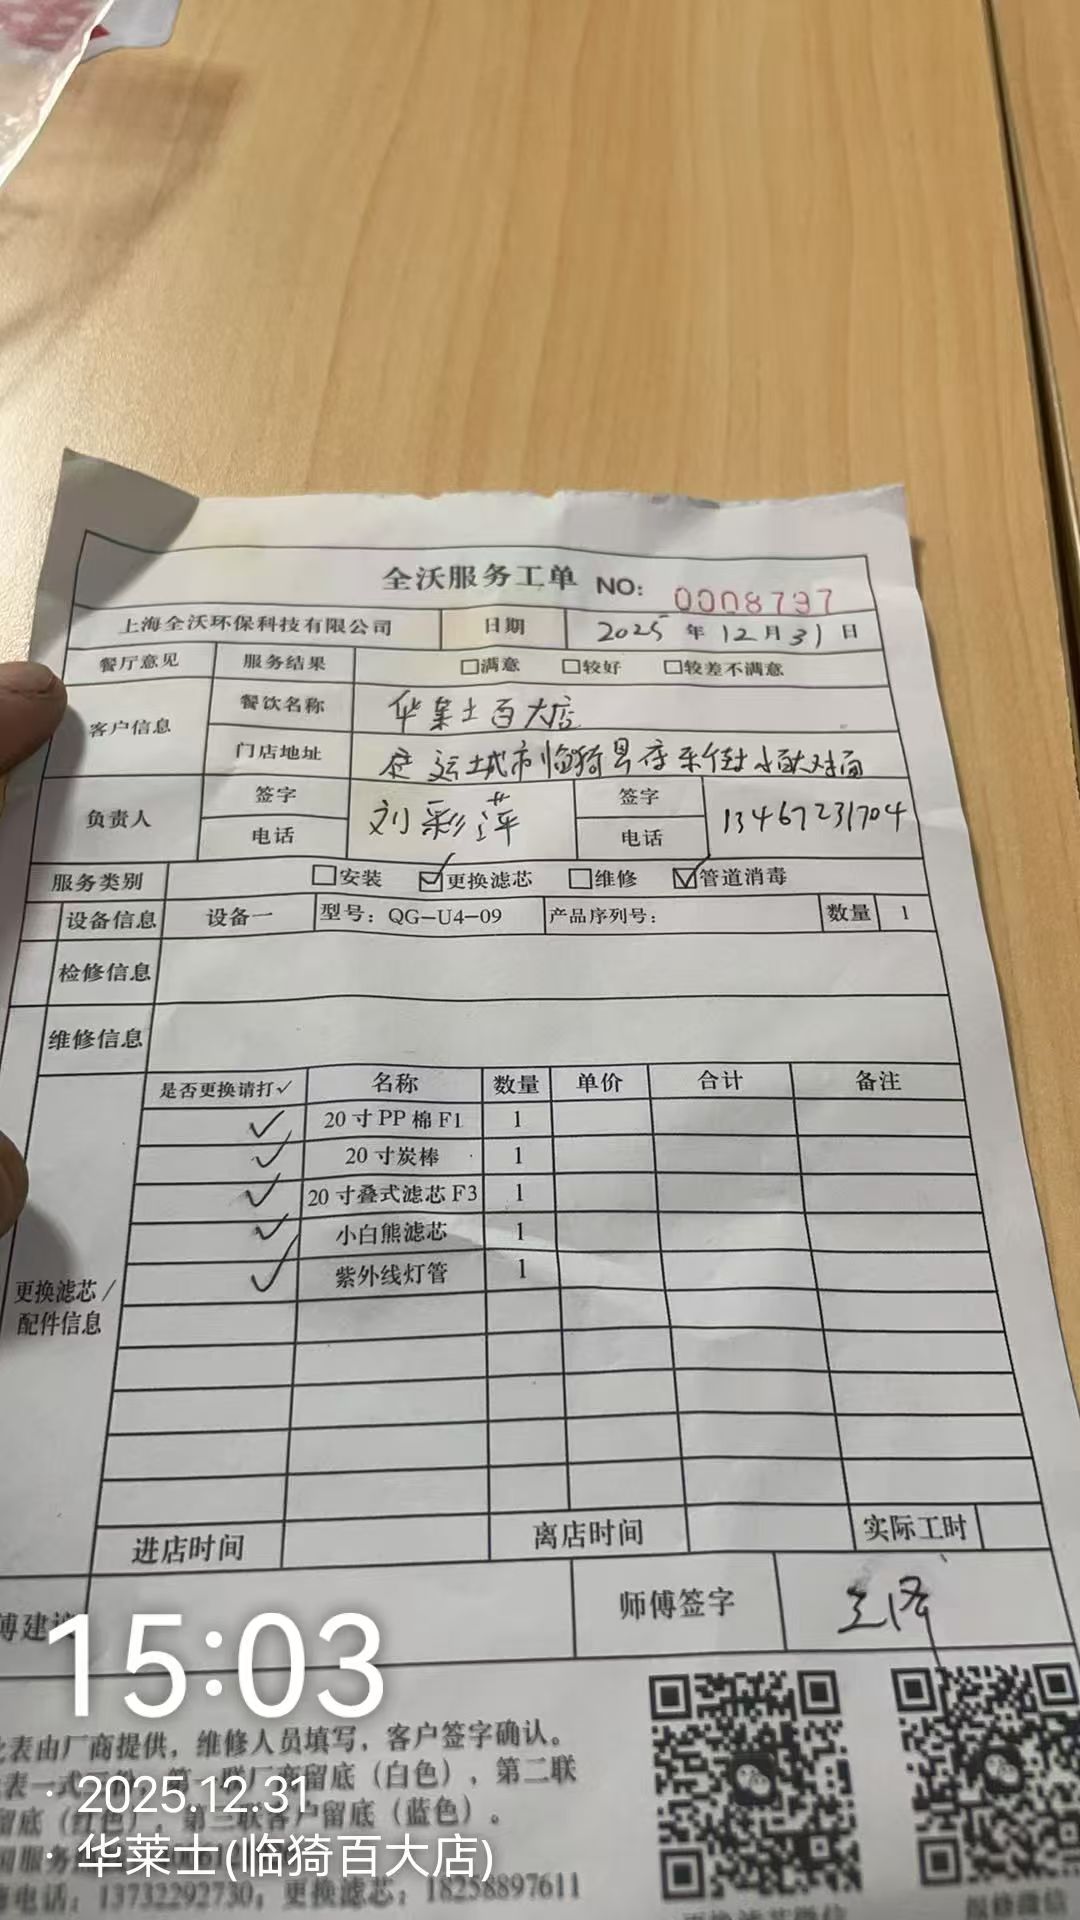 全沃服务工单 NO: 0008797
上海全沃环保科技有限公司 日期 2025年12月31日
餐厅意见 服务结果 □满意 □较好 □较差不满意
客户信息 餐饮名称 华莱士百大店
门店地址 运城市临猗县 对面
负责人 签字 刘彩萍 签字
电话 电话 13467231704
服务类别 □安装 ☑更换滤芯 □维修 ☑管道消毒
设备信息 设备一 型号：QG-U4-09 产品序列号： 数量 1
检修信息
维修信息
是否更换请打✓ 名称 数量 单价 合计 备注
✓ 20寸PP棉F1 1
✓ 20寸炭棒 1
✓ 20寸叠式滤芯F3 1
✓ 小白熊滤芯 1
✓ 紫外线灯管 1
更换滤芯/
配件信息
进店时间 离店时间 实际工时
傅建议 师傅签字
15:03
表由厂商提供，维修人员填写，客户签字确认。
表一式三份，第一联厂商留底（白色），第二联
留底（红色），第三联客户留底（蓝色）。
· 2025.12.31
· 华莱士(临猗百大店)
电话：13732292730，更换滤芯：18258897611
更换滤芯微信 报修微信